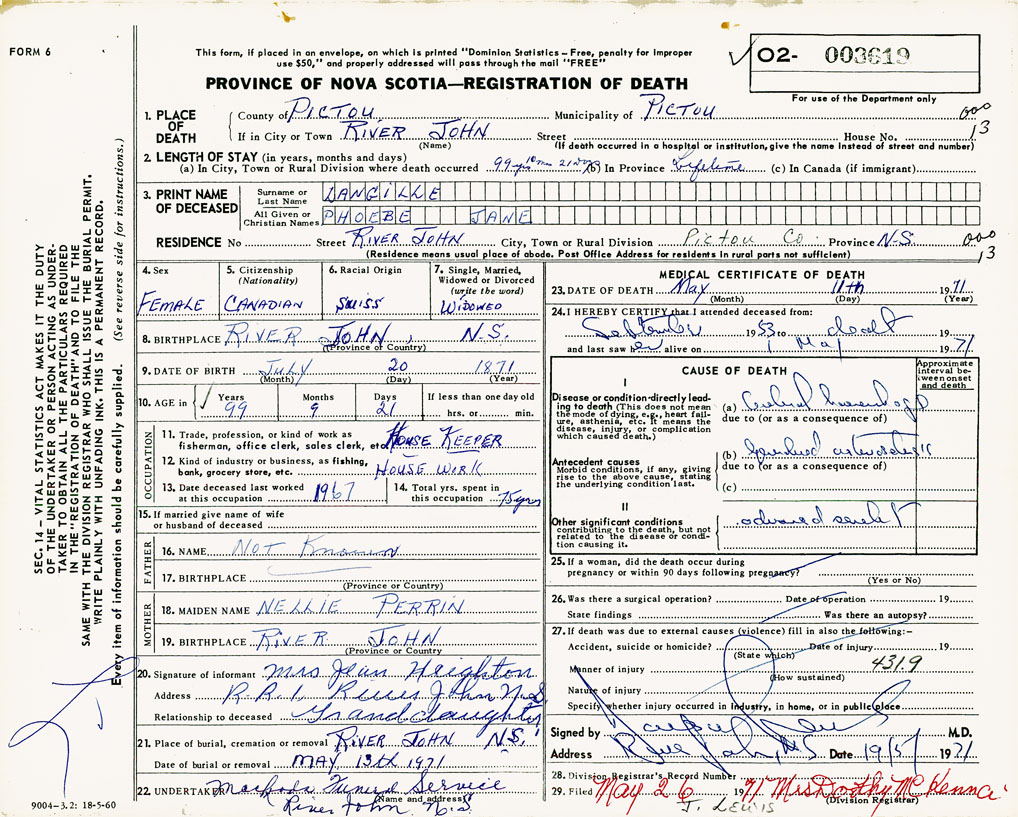 FORM 6
This form, if placed in an envelope, on which is printed "Dominion Statistics – Free, penalty for improper
use $50," and properly addressed will pass through the mail "FREE"
02- 003619
For use of the Department only
PROVINCE OF NOVA SCOTIA—REGISTRATION OF DEATH
1. PLACE OF DEATH
County of PICTOU Municipality of PICTOU
If in City or Town RIVER JOHN Street House No. 000 13
(Name) (If death occurred in a hospital or institution, give the name instead of street and number)
2. LENGTH OF STAY (in years, months and days)
(a) In City, Town or Rural Division where death occurred 99 yrs 10 mos 21 Days (b) In Province Lifetime (c) In Canada (if immigrant)
3. PRINT NAME OF DECEASED
Surname or Last Name LANGILLE
All Given or Christian Names PHOEBE JANE
RESIDENCE No Street RIVER JOHN City, Town or Rural Division Pictou Co. Province N.S. 000 13
(Residence means usual place of abode. Post Office Address for residents in rural parts not sufficient)
4. Sex FEMALE
5. Citizenship (Nationality) CANADIAN
6. Racial Origin SWISS
7. Single, Married, Widowed or Divorced (write the word) WIDOWED
8. BIRTHPLACE RIVER JOHN N.S.
(Province or Country)
9. DATE OF BIRTH JULY 20 1871
(Month) (Day) (Year)
10. AGE in Years Months Days If less than one day old
99 9 21 hrs. or min.
OCCUPATION
11. Trade, profession, or kind of work as
fisherman, office clerk, sales clerk, etc. HOUSE KEEPER
12. Kind of industry or business, as fishing,
bank, grocery store, etc. HOUSE WIRK
13. Date deceased last worked at this occupation 1967
14. Total yrs. spent in this occupation 75 yrs
15. If married give name of wife
or husband of deceased
FATHER
16. NAME NOT Known
17. BIRTHPLACE
(Province or Country)
MOTHER
18. MAIDEN NAME NELLIE PERRIN
19. BIRTHPLACE RIVER JOHN
(Province or Country)
20. Signature of informant Mrs Jean Heighton
Address R.R.1, River John N.S.
Relationship to deceased Granddaughter
21. Place of burial, cremation or removal RIVER JOHN N.S.
Date of burial or removal MAY 13th 1971
22. UNDERTAKER Funeral Service
River John, N.S.
(Name and address)
9004–3.2: 18-5-60
MEDICAL CERTIFICATE OF DEATH
23. DATE OF DEATH May 11th 1971
(Month) (Day) (Year)
24. I HEREBY CERTIFY that I attended deceased from:
September 1953 to death 19
and last saw her alive on 1 May 1971
CAUSE OF DEATH
Approximate interval between onset and death
I
Disease or condition directly leading
to death (This does not mean
the mode of dying, e.g., heart failure,
asthenia, etc. It means the
disease, injury, or complication
which caused death.)
(a) Cerebral hemorrhage
due to (or as a consequence of)
Antecedent causes
Morbid conditions, if any, giving
rise to the above cause, stating
the underlying condition last.
(b)
due to (or as a consequence of)
(c)
II
Other significant conditions
contributing to the death, but not
related to the disease or condition
causing it.
advanced
25. If a woman, did the death occur during
pregnancy or within 90 days following pregnancy?
(Yes or No)
26. Was there a surgical operation? Date of operation 19
State findings Was there an autopsy?
27. If death was due to external causes (violence) fill in also the following:–
Accident, suicide or homicide? Date of injury 19
(State which)
Manner of injury 4319
(How sustained)
Nature of injury
Specify whether injury occurred in industry, in home, or in public place
Signed by M.D.
Address River John, N.S. Date 19/5/ 1971
28. Division Registrar's Record Number
29. Filed May 26 1971 Mrs Dorothy McKenna
J. Lewis (Division Registrar)
SEC. 14 – VITAL STATISTICS ACT MAKES IT THE DUTY
OF THE UNDERTAKER OR PERSON ACTING AS UNDERTAKER
TO OBTAIN ALL THE PARTICULARS REQUIRED
IN THE "REGISTRATION OF DEATH" AND TO FILE THE
SAME WITH THE DIVISION REGISTRAR WHO SHALL ISSUE THE BURIAL PERMIT.
WRITE PLAINLY WITH UNFADING INK. THIS IS A PERMANENT RECORD.
Every item of information should be carefully supplied. (See reverse side for instructions.)